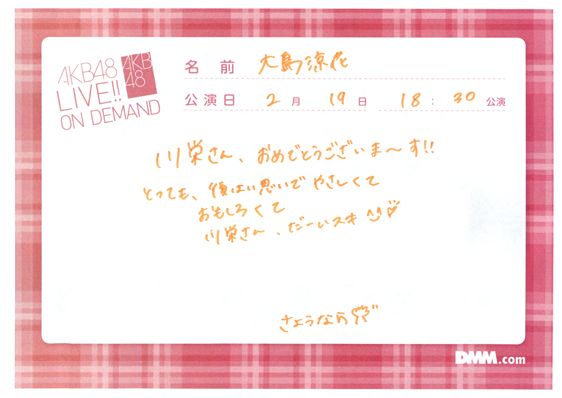 AKB48
LIVE!!
ON DEMAND
AKB
48
名前 大島涼花
公演日 2月 19日 18:30 公演
川栄さん、おめでとうございま〜す!!
とっても、後はい思いで やさしくて
おもしろくて
川栄さん、だーいスキ ^^♡
さようなら
DMM.com